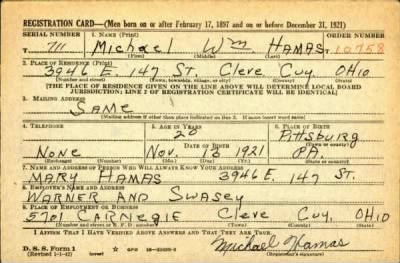 REGISTRATION CARD—(Men born on or after February 17, 1897 and on or before December 31, 1921)
SERIAL NUMBER 1. NAME (Print) ORDER NUMBER
711 Michael Wm. HAMAS T10758
(First) (Middle) (Last)
2. PLACE OF RESIDENCE (Print)
3946 E. 147 ST. Cleve Cuy. OHIO
(Number and street) (Town, township, village, or city) (County) (State)
[THE PLACE OF RESIDENCE GIVEN ON THE LINE ABOVE WILL DETERMINE LOCAL BOARD
JURISDICTION; LINE 2 OF REGISTRATION CERTIFICATE WILL BE IDENTICAL]
3. MAILING ADDRESS
SAME
[Mailing address if other than place indicated on line 2. If same insert word same]
4. TELEPHONE 5. AGE IN YEARS 6. PLACE OF BIRTH
20 Pittsburg
DATE OF BIRTH (Town or county)
None Nov. 16 1921 PA.
(Exchange) (Number) (Mo.) (Day) (Yr.) (State or country)
7. NAME AND ADDRESS OF PERSON WHO WILL ALWAYS KNOW YOUR ADDRESS
MARY HAMAS 3946 E. 147 ST.
8. EMPLOYER'S NAME AND ADDRESS
WARNER AND SWASEY
9. PLACE OF EMPLOYMENT OR BUSINESS
5701 CARNEGIE Cleve Cuy, OHIO
(Number and street or R. F. D. number) (Town) (County) (State)
I AFFIRM THAT I HAVE VERIFIED ABOVE ANSWERS AND THAT THEY ARE TRUE.
D. S. S. Form 1
(Revised 1-1-42) (over) GPO Michael Hamas
(Registrant's signature)